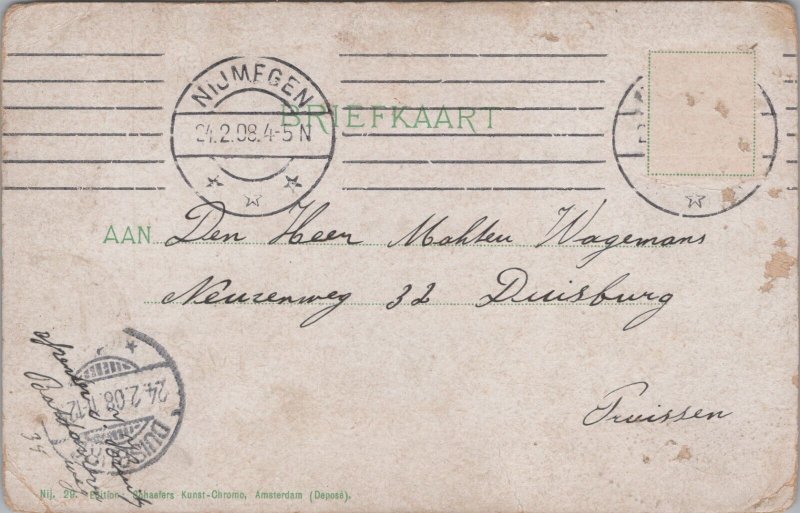 NIJMEGEN
24.2.08.4-5 N
BRIEFKAART
AAN Den Heer Mahten Wagemans
Neuzenweg 32 Duisburg
Pruissen
24.2.08
DUISBURG
34
Nij. 29. Edition: Schaefers Kunst-Chromo, Amsterdam (Deposé).